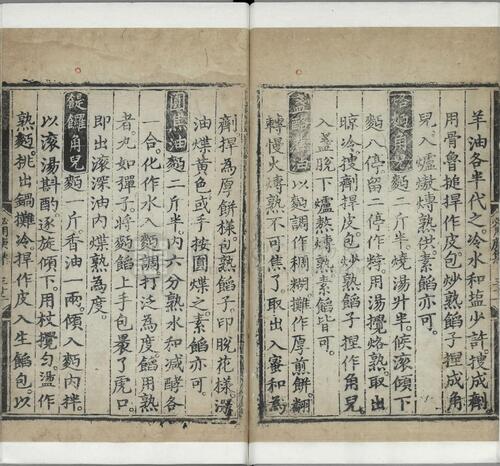 羊油各半代之冷水和塩少許搜成劑
用骨魯搥捍作皮包炒熟餡子捏成角
兒入爐熬煿熟供素餡亦可
麪八停留二停作㶽用湯攪烙熟取出
晾冷搜劑捍皮包炒熟餡子捏作角兒
入盞脫下爐熬煿熟素餡皆可
以麪調作稠糊攤作厚煎餅翻
轉慢火煿熟不可焦了取出入蜜和爲
劑捍爲厚餅樣包熟餡子印脫花樣
油煠黃色或手按圓煠之素餡亦可
圓焦油 麪二斤半內六分熟水和減酵各
一合化作水入麪調打泛爲度餡用熟
者丸如彈子將麪餡上手包褁了虎口
即出滚深油內煠熟爲度
饆饠角兒 麪一斤香油一兩傾入麪內拌
以滚湯斟酌逐旋傾下用杖攪匀盪作
熟麪挑出鍋攤冷捍作皮入生餡包以